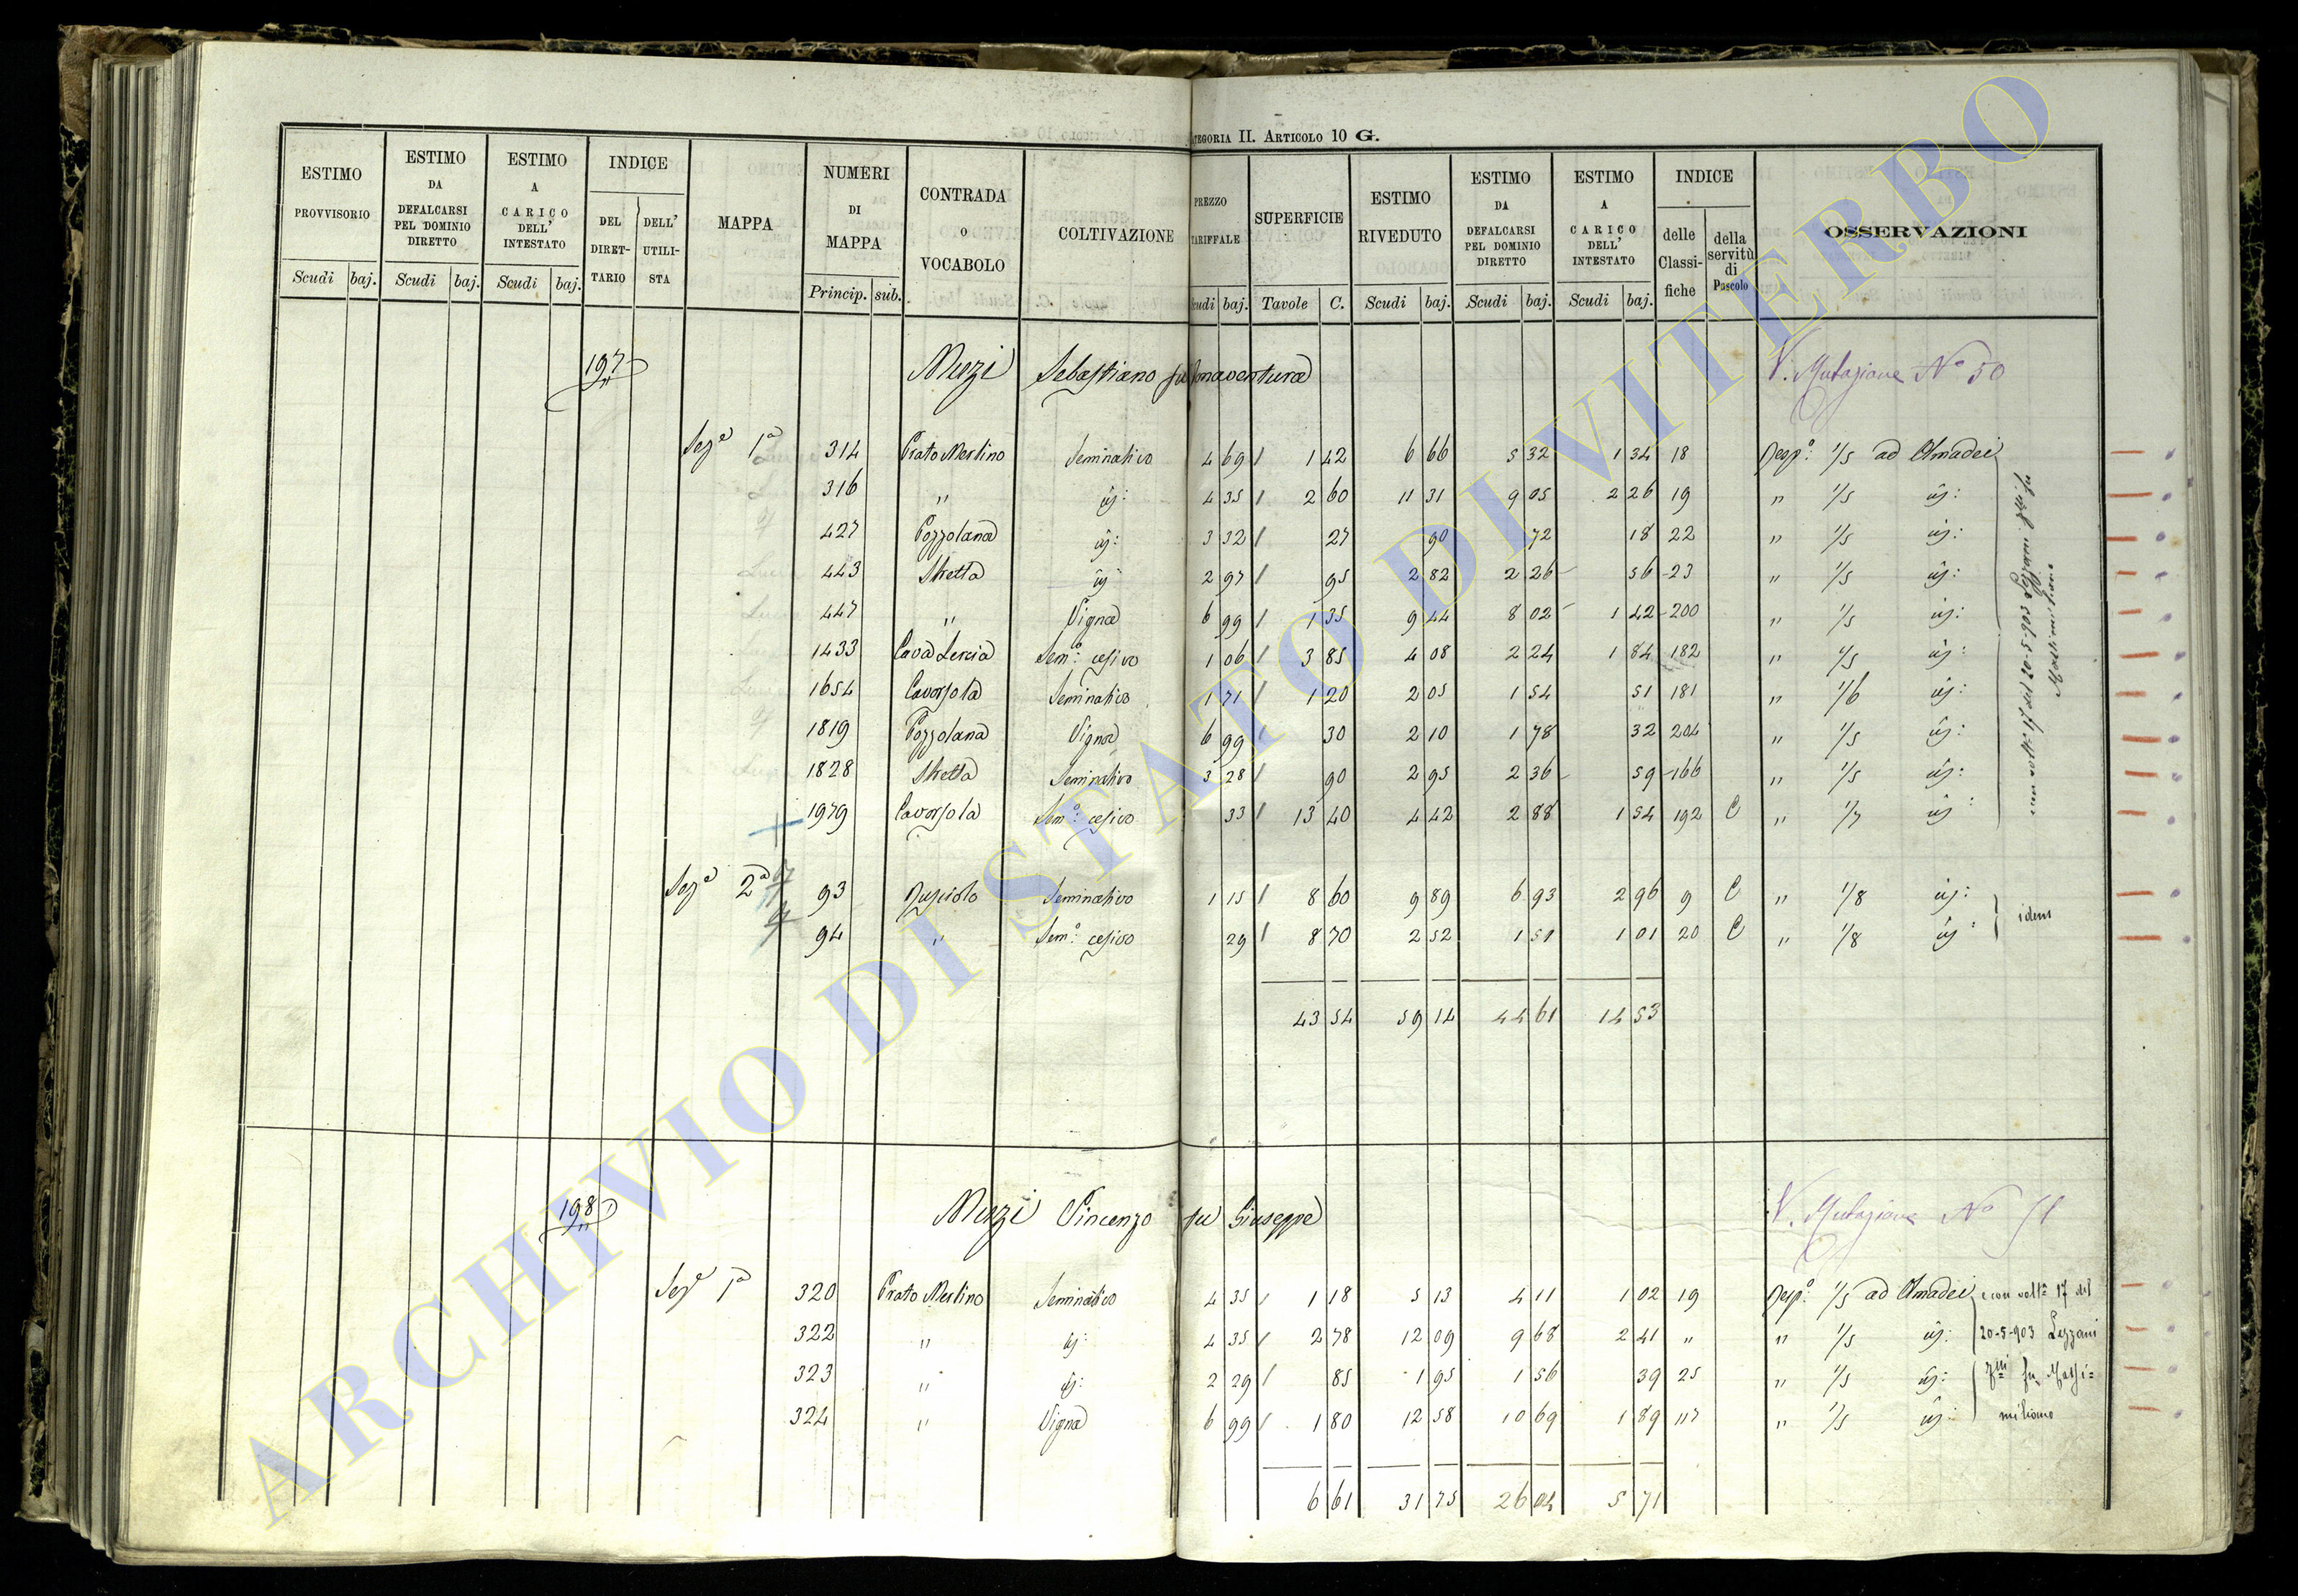 CATEGORIA II. ARTICOLO 10 G.
ESTIMO PROVVISORIO | ESTIMO DA DEFALCARSI PEL DOMINIO DIRETTO | ESTIMO A CARICO DELL' INTESTATO | INDICE DEL DIRETTARIO | DELL' UTILISTA | MAPPA | NUMERI DI MAPPA | CONTRADA O VOCABOLO | COLTIVAZIONE | PREZZO TARIFFALE | SUPERFICIE | ESTIMO RIVEDUTO | ESTIMO DA DEFALCARSI PEL DOMINIO DIRETTO | ESTIMO A CARICO DELL' INTESTATO | INDICE delle Classifiche | della servitù di Pascolo | OSSERVAZIONI
Scudi | baj. | Scudi | baj. | Scudi | baj. | Princip. | sub. | Scudi | baj. | Tavole | C. | Scudi | baj. | Scudi | baj. | Scudi | baj.
197 Merzi Sebastiano fu Bonaventura V. Mutazione N° 50
Sezᵉ 1ª 314 Prato Merlino Seminativo 4 69 1 42 6 66 5 32 1 34 18 Rispᵒ: 1/5 ad Amadei
316 " id: 4 35 2 60 11 31 9 05 2 26 19 " 1/5 id:
427 Pozzolana id: 3 32 27 90 72 18 22 " 1/5 id:
443 id 2 97 95 2 82 2 26 56 23 " 1/5 id:
447 " Vigna 6 99 1 35 9 44 8 02 1 42 200 " 1/5 id:
1433 Cava Semᵒ: cesivo 1 06 3 85 4 08 2 24 1 84 182 " id:
1654 Seminativo 1 71 1 20 2 05 1 54 51 181 " 1/6 id:
1819 Pozzolana Vigna 6 99 30 2 10 1 78 32 204 " 1/5 id:
1828 Seminativo 3 28 90 2 95 2 36 59 166 " 1/5 id:
1979 Semᵒ: cesivo 33 13 40 4 42 2 88 1 54 192 C " 1/7 id
con voltª 17 del 20-5-903 Lezzani fu Massimiliano
Sezᵉ 2ª 93 Seminativo 1 15 8 60 9 89 6 93 2 96 9 C " 1/8 id: idem
94 " Semᵒ: cesivo 29 8 70 2 52 1 51 1 01 20 C " 1/8 id
43 54 59 14 44 61 14 53
198 Merzi Vincenzo fu Giuseppe V. Mutazione N° 51
Sezᵉ 1ª 320 Prato Merlino Seminativo 4 35 1 18 5 13 4 11 1 02 19 Rispᵒ: 1/5 ad Amadei con voltª 17 del
322 " id: 4 35 2 78 12 09 9 68 2 41 " " 1/5 id: 20-5-903 Lezzani
323 " id: 2 29 85 1 95 1 56 39 25 " 1/5 id: fu Massi=
324 " Vigna 6 99 1 80 12 58 10 69 1 89 117 " 1/5 id: miliano
6 61 31 75 26 04 5 71
ARCHIVIO DI STATO DI VITERBO